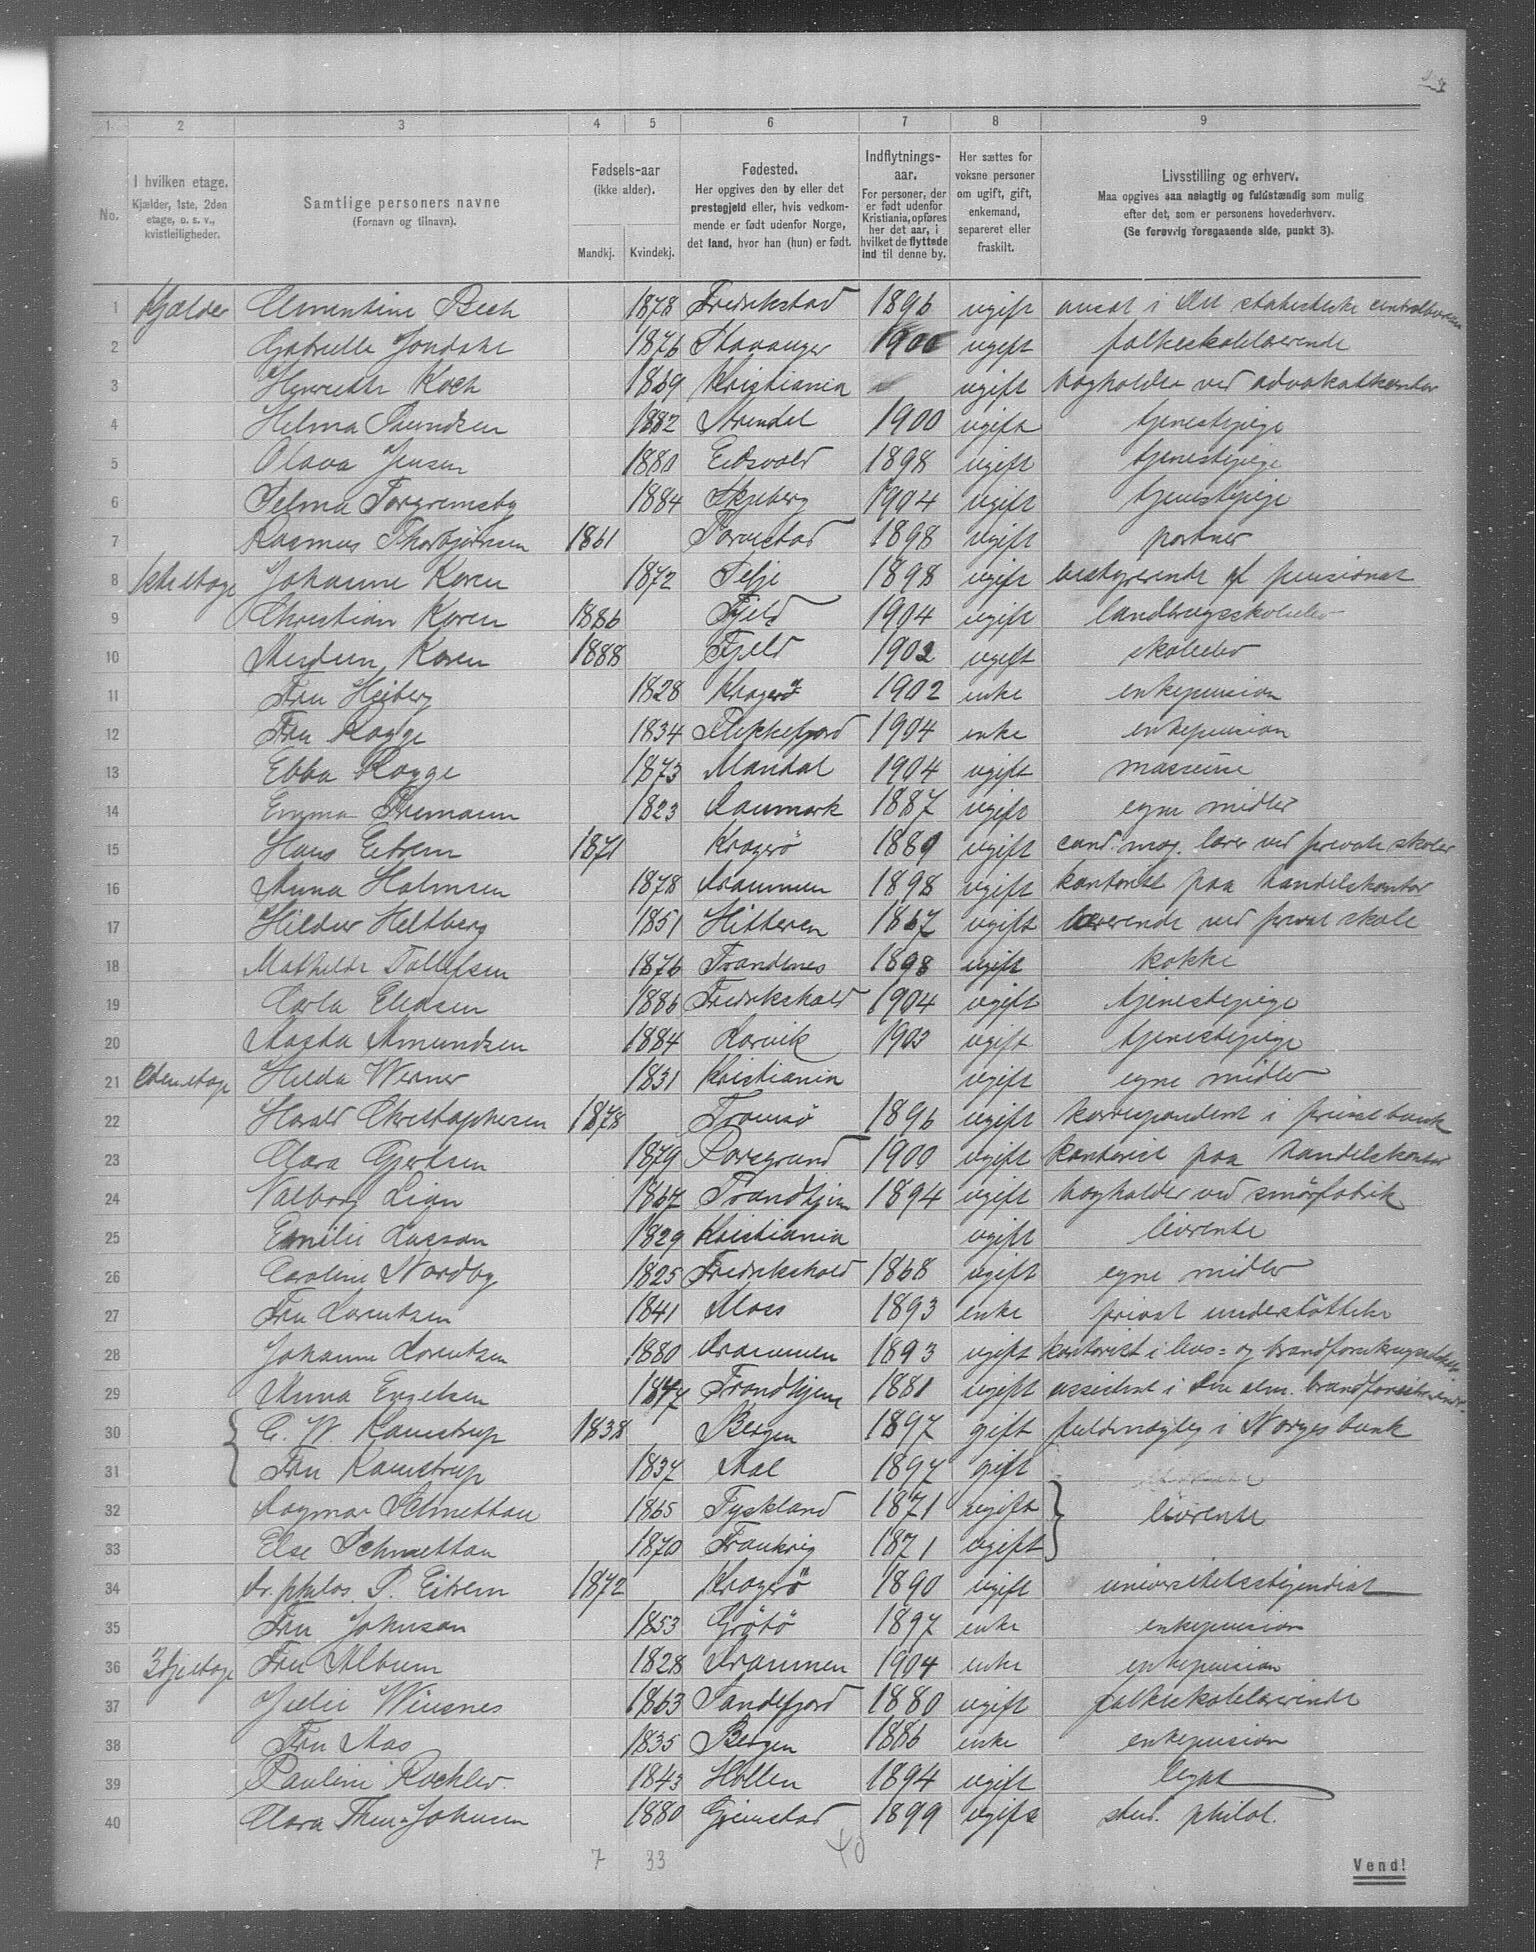 1 2 3 4 5 6 7 8 9
No.
I hvilken etage.
Kjælder, 1ste, 2den
etage, o. s. v.,
kvistleiligheder.
Samtlige personers navne
(Fornavn og tilnavn).
Fødsels-aar
(ikke alder).
Mandkj. Kvindekj.
Fødested.
Her opgives den by eller det
prestegjeld eller, hvis vedkom-
mende er født udenfor Norge,
det land, hvor han (hun) er født.
Indflytnings-
aar.
For personer, der
er født udenfor
Kristiania, opføres
her det aar, i
hvilket de flyttede
ind til denne by.
Her sættes for
voksne personer
om ugift, gift,
enkemand,
separeret eller
fraskilt.
Livsstilling og erhverv.
Maa opgives saa nøiagtig og fuldstændig som mulig
efter det, som er personens hovederhverv.
(Se forøvrig foregaaende side, punkt 3).
1 Kjælder Clementine Bech 1878 Fredrikstad 1896 ugift ansat i Det statistiske centralbureau
2 Gabrielle 1876 Stavanger 1900 ugift folkeskolelærerinde
3 Henriette Koch 1869 Kristiania ugift bogholder ved advokatkontor
4 Helma 1882 Arendal 1900 ugift tjenestepige
5 Olava Jensen 1880 Eidsvold 1898 ugift tjenestepige
6 Selma Torgremsby 1884 Skjeberg 1904 ugift tjenestepige
7 Rasmus Thorbjørnsen 1861 Torvestad 1898 ugift portner
8 1steetage Johanne Koren 1872 Selje 1898 ugift bestyrerinde af pensionat
9 Christian Koren 1886 Fjeld 1904 ugift landbrugsskoleelev
10 Koren 1888 Fjeld 1902 ugift skoleelev
11 Fru Heiberg 1828 Kragerø 1902 enke enkepension
12 Fru Rogge 1834 Flekkefjord 1904 enke enkepension
13 Ebba Rogge 1873 Mandal 1904 ugift masseuse
14 Emma 1823 Danmark 1887 ugift egne midler
15 Hans Eitrem 1871 Kragerö 1889 ugift cand. mag. lærer ved private skoler
16 Anna Holmsen 1878 Drammen 1898 ugift kontorist paa handelskontor
17 Hildur Heltberg 1851 Hitteren 1867 ugift lærerinde ved privat skole
18 Mathilde Tollefsen 1876 Trondenes 1898 ugift kokke
19 Carla Eliasen 1886 Fredrikshald 1904 ugift tjenestepige
20 Aasta Amundsen 1884 Larvik 1903 ugift tjenestepige
21 2denetage Hilda Werner 1831 Kristiania ugift egne midler
22 Harald Christophersen 1878 Tromsö 1896 ugift korrespondent i privatbank
23 Clara Gjertsen 1879 Porsgrund 1900 ugift kontorist paa handelskontor
24 Valborg Lian 1867 Trondhjem 1894 ugift bogholder ved smörfabrik
25 Emilie Lasson 1829 Kristiania ugift livrente
26 Caroline Nordby 1825 Fredrikshald 1868 ugift egne midler
27 Fru Lorentzen 1841 Moss 1893 enke privat understöttelse
28 Johanne Lorentzen 1880 Drammen 1893 ugift kontorist i livs- og brandforsikringsselskab
29 Anna Engelsen 1847 Trondhjem 1881 ugift assistent i Den alm. brandforsikrings
30 C. W. Ramstrup 1838 Bergen 1897 gift fuldmægtig i Norges bank
31 Fru Ramstrup 1837 Aal 1897 gift
32 Dagmar Schmettau 1865 Tyskland 1871 ugift livrente
33 Else Schmettau 1870 Frankrig 1871 ugift
34 Dr. philos. S. Eitrem 1872 Kragerö 1890 ugift universitetsstipendiat
35 Fru Johnson 1853 Grötö 1897 enke enkepension
36 3djeetage Fru Album 1828 Drammen 1904 enke enkepension
37 Julie Winsnes 1863 Sandefjord 1880 ugift folkeskolelærerinde
38 Fru Aas 1835 Bergen 1886 enke enkepension
39 Pauline Rachlew. 1843 Hollen 1894 ugift legat
40 Clara Johnsen 1880 Grimstad 1899 ugift stud. philol.
7 33 40
Vend!